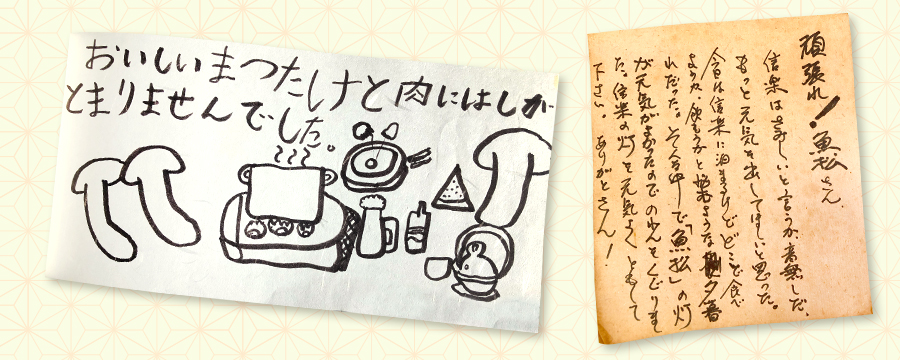 おいしいまつたけと肉にはしが
とまりませんでした。
頑張れ!魚松さん
信楽はさみしいと言うか音無しだ、
もっと元気を出してほしいと思った。
今日は信楽に泊まるけどどこで食べ
ようか、飲もうかと悩むような夕暮
れだった。そんな中で「魚松」の灯
が元気がよかったのでのれんをくぐりまし
た。信楽の灯を元気よくともして
下さい。ありがとさん!